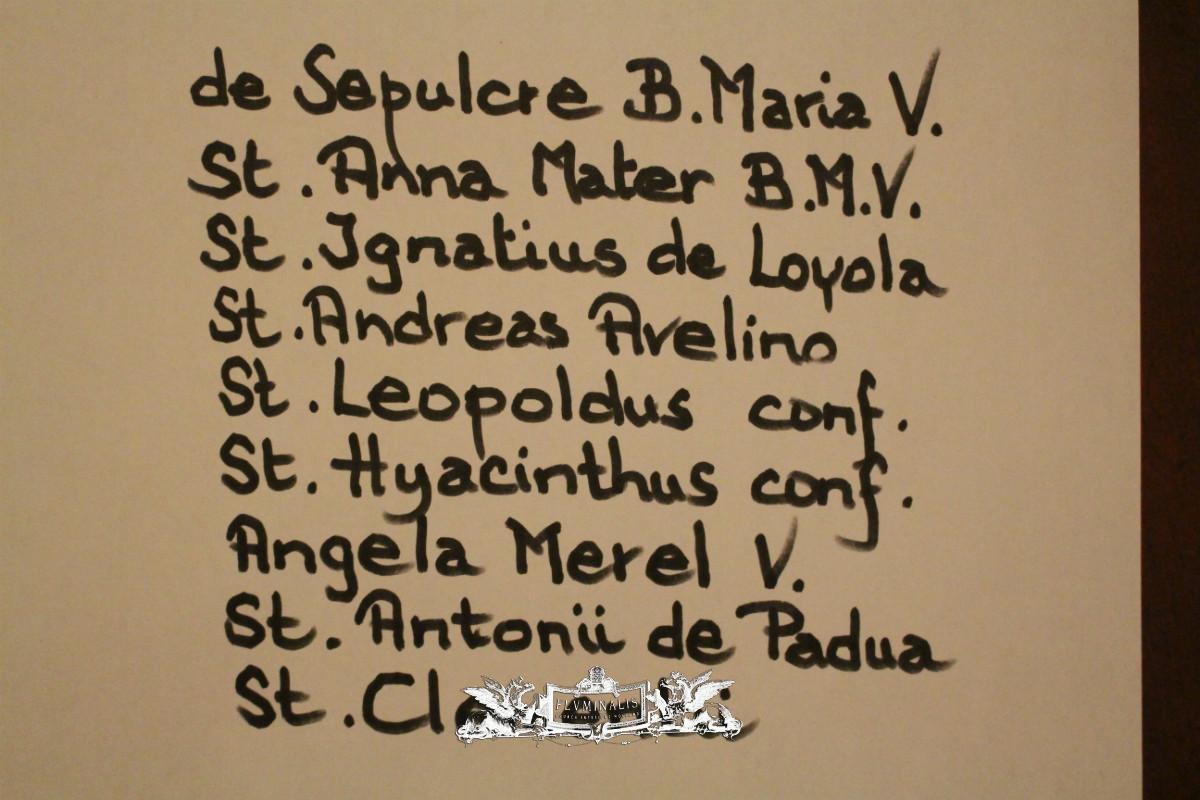 de Sepulcre B. Maria V.
St. Anna Mater B.M.V.
St. Ignatius de Loyola
St. Andreas Avelino
St. Leopoldus conf.
St. Hyacinthus conf.
Angela Merel V.
St. Antonii de Padua
St.
FLVMINALIS